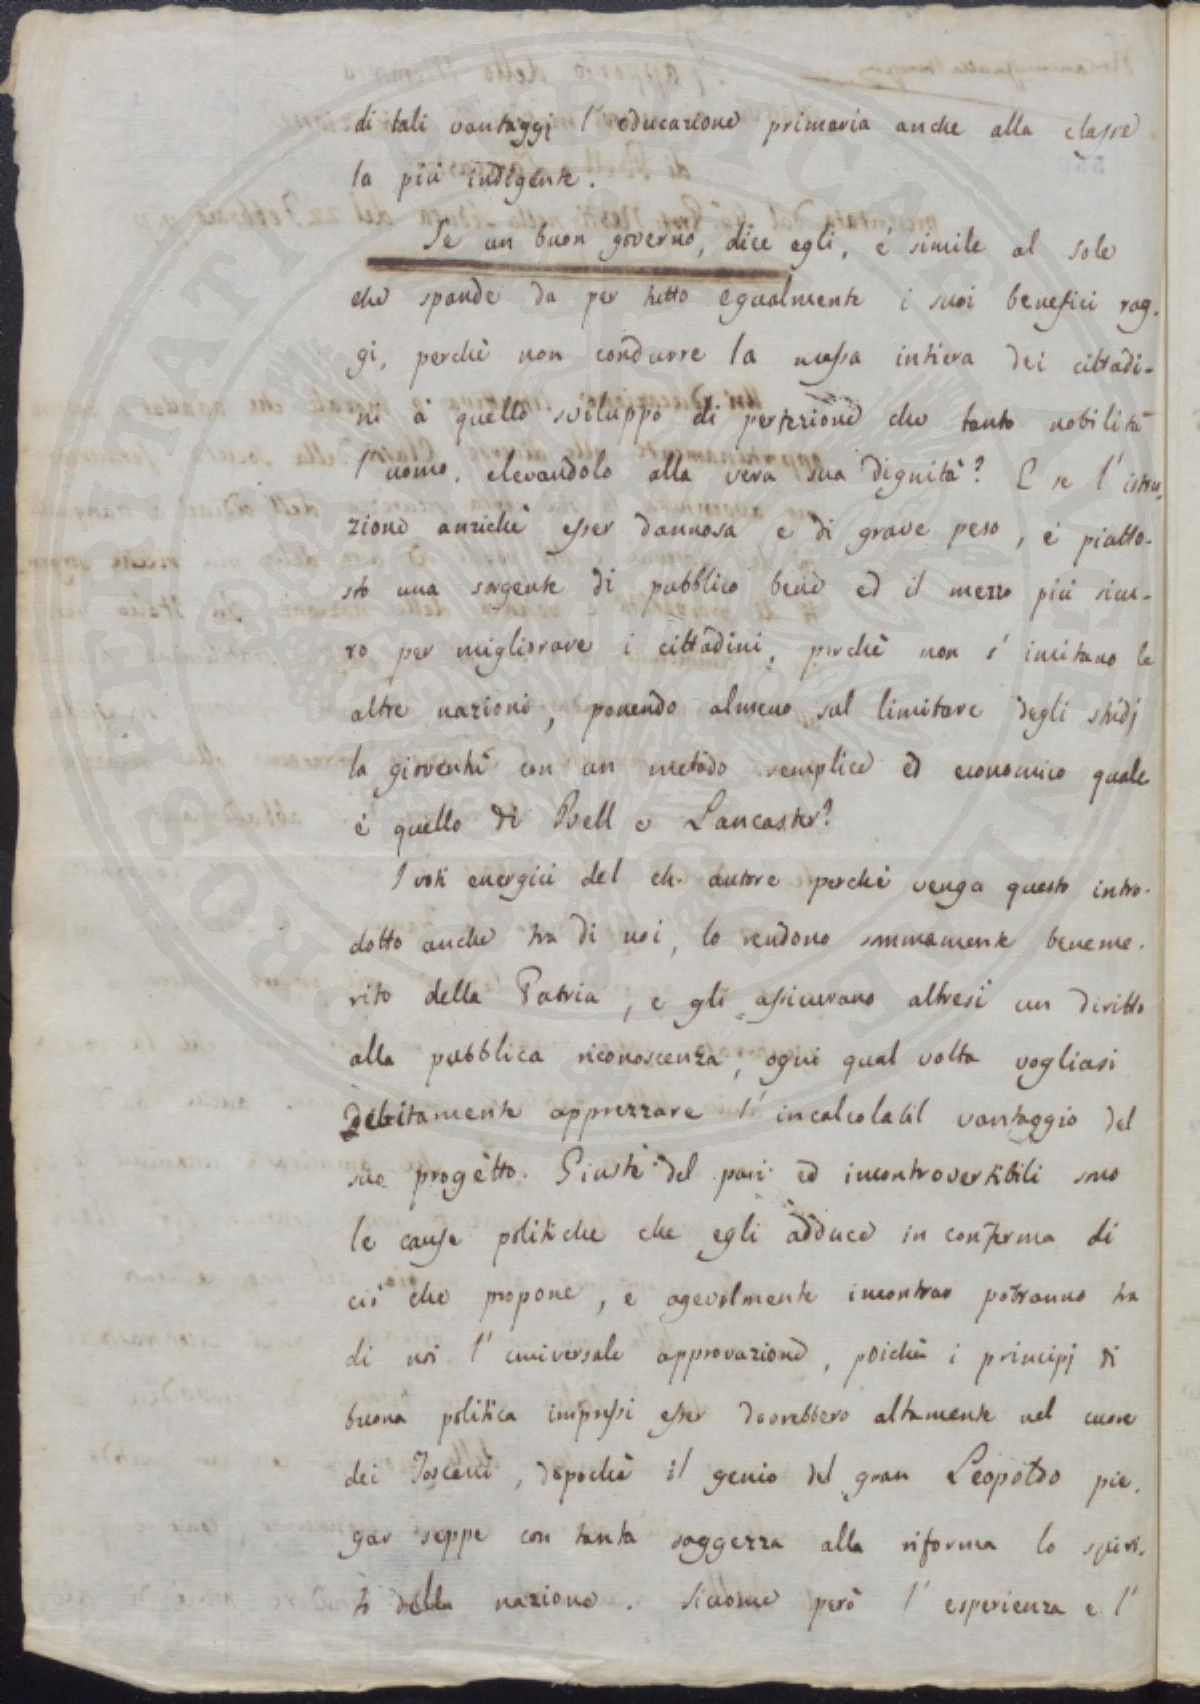 di tali vantaggj l'educazione primaria anche alla classe
la più indigente.
Se un buon governo, dice egli, è simile al sole
che spande da per tutto egualmente i suoi benefici rag-
gi, perchè non condurre la massa intiera dei cittadi-
ni a quello sviluppo di perfezione che tanto nobilita
l'uomo, elevandolo alla vera sua dignità? E se l'istru-
zione anzichè esser dannosa e di grave peso, è piutto-
sto una sorgente di pubblico bene ed il mezzo più sicu-
ro per migliorare i cittadini, perchè non s'imitano le
altre nazioni, ponendo almeno sul limitare degli studj
la gioventù con un metodo semplice ed economico quale
è quello di Bell e Lancaster?
I voti energici del ch. autore perchè venga questo intro-
dotto anche tra di noi, lo rendono sommamente beneme-
rito della Patria, e gli assicurano altresì un diritto
alla pubblica riconoscenza, ogni qual volta vogliasi
debitamente apprezzare l'incalcolabil vantaggio del
suo progetto. Giuste del pari ed incontrovertibili sono
le cause politiche che egli adduce in conferma di
ciò che propone, e agevolmente incontrar potranno tra
di noi l'universale approvazione, poichè i principj di
buona politica impressi esser dovrebbero altamente nel cuore
dei Toscani, dopochè il genio del gran Leopoldo pie-
gar seppe con tanta saggezza alla riforma lo spiri-
to della nazione. Siccome però l'esperienza e l'